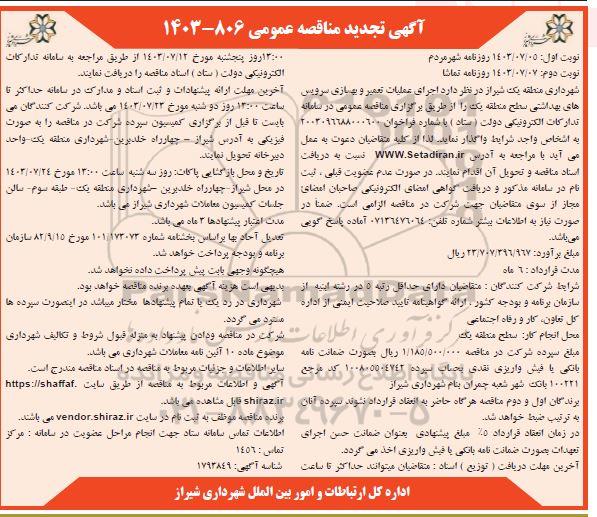 آگهی تجدید مناقصه عمومی ۸۰۶-۱۴۰۳
نوبت اول: ۱۴۰۳/۰۷/۰۵ روزنامه شهرمردم
نوبت دوم: ۱۴۰۳/۰۷/۰۷ روزنامه تماشا
شهرداری منطقه یک شیراز در نظر دارد اجرای عملیات تعمیر و بهسازی سرویس
های بهداشتی سطح منطقه یک را از طریق برگزاری مناقصه عمومی در سامانه
تدارکات الکترونیکی دولت ( ستاد ) با شماره فراخوان ۲۰۰۳۰۹۶۶۸۸۰۰۰۶۰۰
به اشخاص واجد شرایط واگذار نماید. لذا از کلیه متقاضیان دعوت به عمل
می آید با مراجعه به آدرس WWW.Setadiran.ir نسبت به دریافت
اسناد مناقصه و تحویل آن اقدام نمایند. در صورت عدم عضویت قبلی ، ثبت
نام در سامانه مذکور و دریافت گواهی امضای الکترونیکی صاحبان امضای
مجاز از سوی متقاضیان جهت شرکت در مناقصه الزامی است. ضمناً در
صورت نیاز به اطلاعات بیشتر شماره تلفن: ۰۷۱۳۶۴۷۶۰۶۴ آماده پاسخ گویی
می‌باشد.
مبلغ برآورد: ۲۳/۷۰۷/۳۹۶/۹۶۷ ریال
مدت قرارداد : ۶ ماه
شرایط شرکت کنندگان : متقاضیان دارای حداقل رتبه ۵ در رشته ابنیه از
سازمان برنامه و بودجه کشور ، ارائه گواهینامه تایید صلاحیت ایمنی از اداره
کل تعاون، کار و رفاه اجتماعی
محل انجام کار: سطح منطقه یک
مبلغ سپرده شرکت در مناقصه ۱/۱۸۵/۵۰۰/۰۰۰ ریال بصورت ضمانت نامه
بانکی یا فیش واریزی نقدی بحساب سپرده ۱۰۰۸۰۵۵۰۴۷۴۲ کد مرجع
۱۰۰۲۲۱ بانک شهر شعبه چمران بنام شهرداری شیراز
برندگان اول و دوم مناقصه هرگاه حاضر به انعقاد قرارداد نشوند سپرده آنان
به ترتیب ضبط خواهد شد.
در زمان انعقاد قرارداد ۵٪ مبلغ پیشنهادی بعنوان ضمانت حسن اجرای
تعهدات بصورت ضمانت نامه بانکی یا فیش واریزی اخذ می گردد.
آخرین مهلت دریافت ( توزیع ) اسناد : متقاضیان میتوانند حداکثر تا ساعت
۱۳:۰۰روز پنجشنبه مورخ ۱۴۰۳/۰۷/۱۲ از طریق مراجعه به سامانه تدارکات
الکترونیکی دولت ( ستاد ) اسناد مناقصه را دریافت نمایند.
آخرین مهلت ارائه پیشنهادات و ثبت اسناد و مدارک در سامانه حداکثر تا
ساعت ۱۳:۰۰ روز دو شنبه مورخ ۱۴۰۳/۰۷/۲۳ می باشد. شرکت کنندگان می
بایست تا قبل از برگزاری کمیسیون سپرده شرکت در مناقصه را به صورت
فیزیکی به آدرس شیراز - چهارراه خلدبرین-شهرداری منطقه یک-واحد
دبیرخانه تحویل نمایند.
تاریخ و محل بازگشایی پاکات: روز سه شنبه ساعت ۱۳:۰۰ مورخ ۱۴۰۳/۰۷/۲۴
در محل شیراز-چهارراه خلدبرین -شهرداری منطقه یک- طبقه سوم- سالن
جلسات کمیسیون معاملات شهرداری شیراز می باشد.
مدت اعتبار پیشنهادها ۳ ماه می باشد.
تعدیل آحاد بها براساس بخشنامه شماره ۱۰۱/۱۷۳۰۷۳ مورخ ۸۲/۹/۱۵ سازمان
برنامه و بودجه پرداخت خواهد شد.
هیچگونه وجهی بابت پیش پرداخت داده نخواهد شد.
بدیهی است هزینه آگهی بعهده برنده مناقصه خواهد بود.
شهرداری در رد یک یا تمام پیشنهادها مختار میباشد در اینصورت سپرده ها
مسترد می گردد.
شرکت در مناقصه ودادن پیشنهاد به منزله قبول شروط و تکالیف شهرداری
موضوع ماده ۱۰ آئین نامه معاملات شهرداری می باشد.
سایر اطلاعات و جزئیات مربوط به مناقصه در اسناد مناقصه مندرج است.
آگهی و اطلاعات مربوط به مناقصه از طریق سایت https://shaffaf.
shiraz.ir قابل مشاهده می باشد.
برنده مناقصه موظف به ثبت نام در سایت vendor.shiraz.ir می باشند.
اطلاعات تماس سامانه ستاد جهت انجام مراحل عضویت در سامانه : مرکز
تماس : ۱۴۵۶
شناسه آگهی: ۱۷۹۳۸۴۹
اداره کل ارتباطات و امور بین الملل شهرداری شیراز